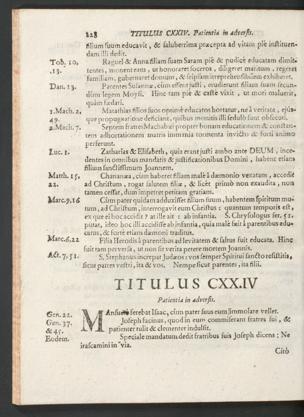 228 TITULUS CXXIV. Patientia in adversis.
filium suum educavit, & saluberrima præcepta ad vitam piè instituendam illi dedit.
Tob. 10. .13. Raguel & Anna filiam suam Saram piè & pudicè educatam dimittentes, monent eam, ut honoraret soceros, diligeret maritum, regeret familiam, gubernaret domum, & seipsam irreprehensibilem exhiberet.
Dan. 13. Parentes Susannæ, cùm essent justi, erudierunt filiam suam secundùm legem Moysi. Hinc tam piè & castè vixit, ut mori maluerit, quàm fœdari.
1. Mach. 2. 49. Matathias filios suos optimè educatos hortatur, ne à veritate, ejusque propugnatione deficiant, quibus monitis illi sedulò sunt obsecuti.
2. Mach. 7. Septem fratres Machabæi propter bonam educationem & constantem adhortationem matris immania tormenta invicto & forti animo perferunt.
Luc. 1. Zacharias & Elisabeth, quia erant justi ambo ante DEUM, incedentes in omnibus mandatis & justificationibus Domini, habent etiam filium sanctissimum Joannem.
Matth. 15. 22. Chananæa, cùm haberet filiam malè à dæmonio vexatam, accedit ad Christum, rogat salutem filiæ, & licet primò non exaudita, non tamen cessat, dum impetret petitam gratiam.
Marc. 9. 16 Cùm pater quidam adduxisset filium suum, habentem spiritum mutum, ad Christum, interrogavit eum Christus: quantum temporis est, ex quo ei hoc accidit? at ille ait: ab infantia. S. Chrysologus ser. 51. putat, ideo hoc illi accidisse ab infantia, quia malè fuit à parentibus educatus, & fortè etiam dæmoni traditus.
Marc. 6. 22 Filia Herodis à parentibus ad levitatem & saltus fuit educata. Hinc fuit tam perversa, ut non sit verita petere mortem Joannis.
Act. 7. 51. S. Stephanus increpat Judæos: vos semper Spiritui sancto resistitis, sicut patres vestri, ita & vos. Nempe sicut parentes, ita filii.
TITULUS CXX.IV
Patientia in adversis.
Gen. 22. MAnsuetè ferebat Isaac, cùm pater suus eum immolare vellet.
Gen. 37. & 45. Joseph facinus, quod in eum commiserant fratres sui, & patienter tulit & clementer indulsit.
Eodem. Speciale mandatum dedit fratribus suis Joseph dicens: Ne irascamini in via.
Citò